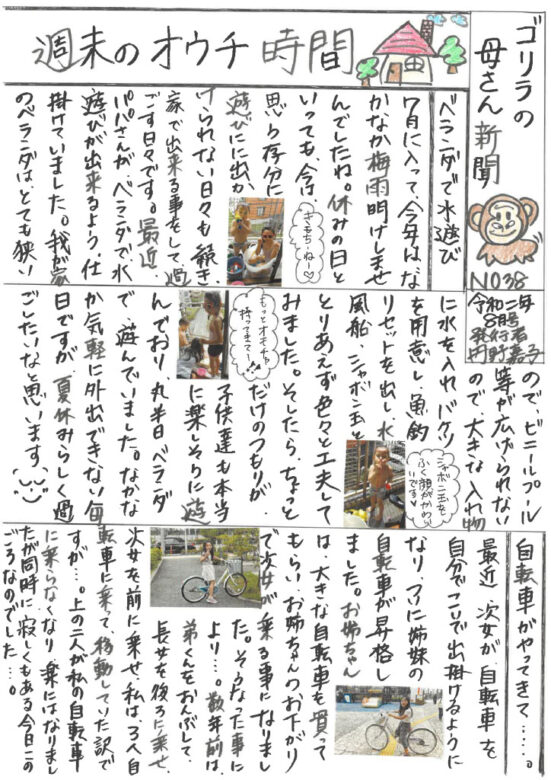 ゴリラの
母さん新聞
NO38
令和二年
8月号
発行者
週末のオウチ時間
ベランダで水遊び
7月に入って、今年はな
かなか梅雨明けしませ
んでしたね。休みの日と
いっても、今は
思う存分に
遊びにに出か
けられない日々も続き、
家で出来る事をして過
ごす日々です。最近
パパさんが、ベランダで水
遊びが出来るよう、仕
掛けていました。我が家
のベランダは、とても狭い
きもちぃねー♡
ので、ビニールプール
等が広げられない
ので、大きな入れ物
に水を入れ、バケツ
を用意し、魚釣
りセットを出し、水
風船、シャボン玉と
とりあえず色々と工夫して
みました。そしたら、ちょっと
だけのつもりが、
子供達も本当
に楽しそうに遊
んでおり、丸半日ベランダ
で、遊んでいました。なかな
か気軽に外出できない毎
日ですが、夏休みらしく過
ごしたいなと思います。
シャボン玉を
ふく顔がかわい
いです♥
もっとオモチャ
持ってきて〜!
自転車がやってきて‥‥。
最近、次女が、自転車を
自分でこいで出掛けるように
なり、ついに姉妹の
自転車が昇格し
ました。お姉ちゃん
は、大きな自転車を買って
もらい、お姉ちゃんのお下がり
で次女が乗る事になりまし
た。そうなった事に
より…。数年前は、
弟くんをおんぶして、
長女を後ろに乗せ、
次女を前に乗せ、私は、3人自
転車に乗って、移動していた訳で
すが…。上の二人が私の自転車
に乗らなくなり、楽にはなりまし
たが同時に寂しくもある今日この
ごろなのでした…。